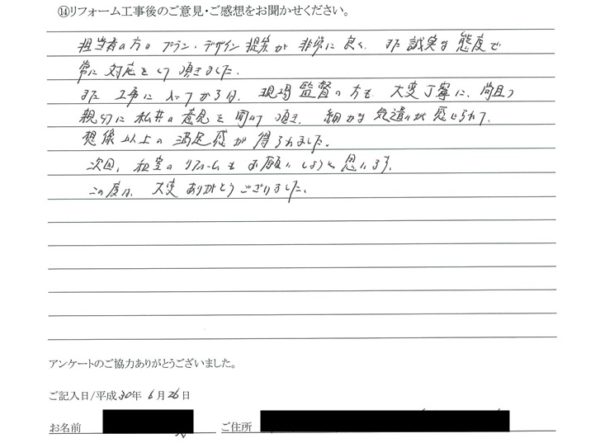 ⑭リフォーム工事後のご意見・ご感想をお聞かせください。
担当者の方のプラン・デザイン提案が非常に良く、また誠実な態度で
常に対応をして頂きました。
また工事に入ってからは、現場監督の方も大変丁寧に、尚且つ
親切に私共の意見を聞いて頂き、細かな気遣いが感じられて、
想像以上の満足感が得られました。
次回、和室のリフォームもお願いしようと思います。
この度は、大変ありがとうございました。
アンケートのご協力ありがとうございました。
ご記入日/平成30年6月26日
お名前 ご住所